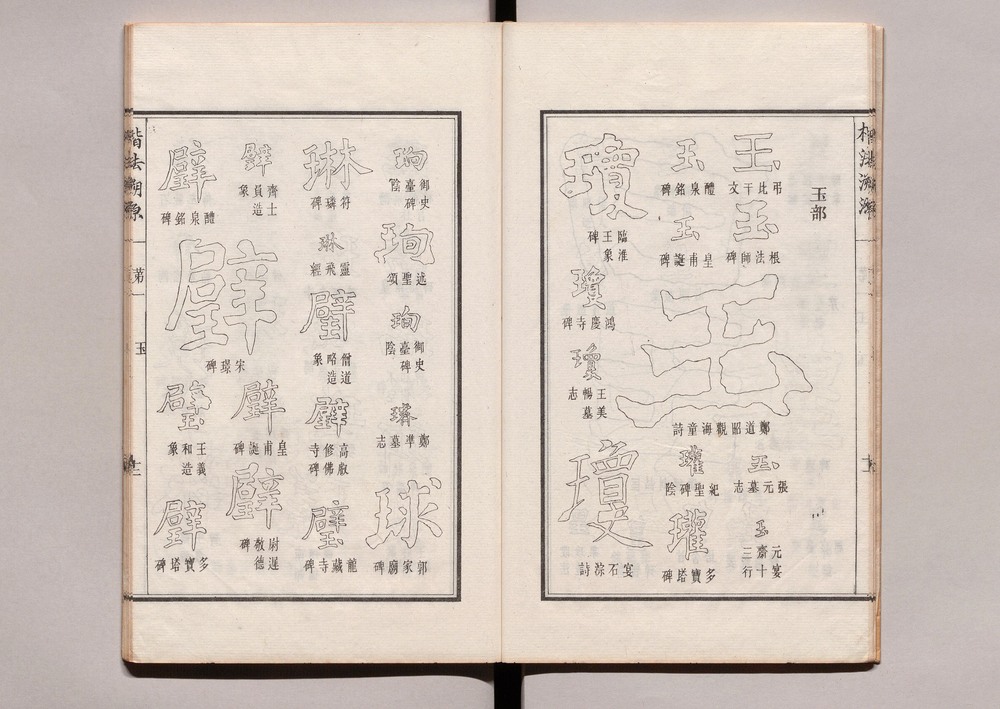 楷法溯源
玉部
玉
弔比干文
玉
根法師碑
玉
鄭道昭觀海童詩
玉
張元墓志
玉
元宴齋十三行
玉
醴泉銘碑
玉
皇甫誕碑
瓘
紀聖碑陰
瓘
多寶塔碑
瓊
臨淮王象碑
瓊
鴻慶寺碑
瓊
王美暢墓志
瓊
宴石淙詩
珣
御史臺碑陰
珣
述聖頌
珣
御史臺碑陰
鄭準墓志
球
郭家廟碑
琳
符璘碑
琳
靈飛經
璧
僧道略造象
璧
高叡修佛寺碑
璧
龍藏寺碑
璧
齊士員造象
璧
醴泉銘碑
璧
宋璟碑
璧
皇甫誕碑
璧
尉遲敬德碑
璧
王義和造象
璧
多寶塔碑
楷法溯源
第一
玉